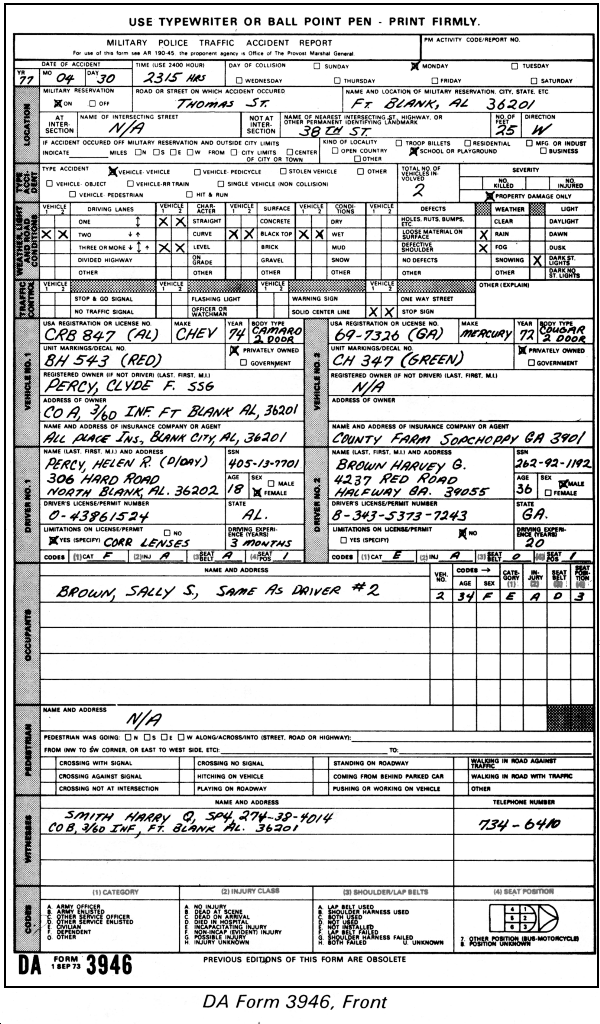 USE TYPEWRITER OR BALL POINT PEN - PRINT FIRMLY.
MILITARY POLICE TRAFFIC ACCIDENT REPORT
For use of this form see AR 190-45. the proponent agency is Office of The Provost Marshal General.
PM ACTIVITY CODE/REPORT NO.
DATE OF ACCIDENT TIME (USE 2400 HOUR) DAY OF COLLISION SUNDAY MONDAY TUESDAY
YR 77 MO 04 DAY 30 2315 HRS WEDNESDAY THURSDAY FRIDAY SATURDAY
LOCATION
MILITARY RESERVATION ROAD OR STREET ON WHICH ACCIDENT OCCURED NAME AND LOCATION OF MILITARY RESERVATION. CITY, STATE ETC
X ON OFF THOMAS ST. FT. BLANK, AL 36201
AT INTERSECTION NAME OF INTERSECTING STREET NOT AT INTERSECTION NAME OF NEAREST INTERSECTING ST, HIGHWAY, OR OTHER PERMANENT IDENTIFYING LANDMARK NO. OF FEET DIRECTION
N/A 38TH ST. 25 W
IF ACCIDENT OCCURED OFF MILITARY RESERVATION AND OUTSIDE CITY LIMITS KIND OF LOCALITY TROOP BILLETS RESIDENTIAL MFG OR INDUST
INDICATE MILES N S E W FROM CITY LIMITS CENTER OF CITY OR TOWN OPEN COUNTRY X SCHOOL OR PLAYGROUND BUSINESS
OTHER
TYPE ACCIDENT
TYPE ACCIDENT X VEHICLE- VEHICLE VEHICLE- PEDICYCLE STOLEN VEHICLE OTHER TOTAL NO. OF VEHICLES INVOLVED SEVERITY
VEHICLE- OBJECT VEHICLE-RR TRAIN SINGLE VEHICLE (NON COLLISION) 2 NO. KILLED NO. INJURED
VEHICLE PEDESTRIAN HIT & RUN X PROPERTY DAMAGE ONLY
WEATHER, LIGHT AND ROAD CONDITIONS
VEHICLE 1 2 DRIVING LANES VEHICLE 1 2 CHARACTER VEHICLE 1 2 SURFACE VEHICLE 1 2 CONDITIONS VEHICLE 1 2 DEFECTS WEATHER LIGHT
ONE X X STRAIGHT CONCRETE DRY HOLES, RUTS, BUMPS, ETC. CLEAR DAYLIGHT
X X TWO CURVE X X BLACK TOP X X WET LOOSE MATERIAL ON SURFACE X RAIN DAWN
THREE OR MONE X X LEVEL BRICK MUD DEFECTIVE SHOULDER X FOG DUSK
DIVIDED HIGHWAY ON GRADE GRAVEL SNOW NO DEFECTS SNOWING X DARK ST. LIGHTS
OTHER OTHER OTHER OTHER OTHER OTHER DARK NO ST. LIGHTS
TRAFFIC CONTROL
VEHICLE 1 2 VEHICLE 1 2 VEHICLE 1 2 VEHICLE 1 2 OTHER (EXPLAIN)
STOP & GO SIGNAL FLASHING LIGHT WARNING SIGN ONE WAY STREET
NO TRAFFIC SIGNAL OFFICER OR WATCHMAN SOLID CENTER LINE X X STOP SIGN
VEHICLE NO. 1
USA REGISTRATION OR LICENSE NO. MAKE YEAR BODY TYPE
CRB 847 (AL) CHEV 74 CAMARO 2 DOOR
UNIT MARKINGS/DECAL NO. X PRIVATELY OWNED
BH 543 (RED) GOVERNMENT
REGISTERED OWNER (IF NOT DRIVER) (LAST, FIRST, M.I.)
PERCY, CLYDE F. SSG
ADDRESS OF OWNER
CO A, 3/60 INF FT BLANK AL, 36201
NAME AND ADDRESS OF INSURANCE COMPANY OR AGENT
ALL PLACE INS., BLANK CITY, AL, 36201
VEHICLE NO. 2
USA REGISTRATION OR LICENSE NO. MAKE YEAR BODY TYPE
69-7326 (GA) MERCURY 72 COUGAR 2 DOOR
UNIT MARKINGS/DECAL NO. X PRIVATELY OWNED
CH 347 (GREEN) GOVERNMENT
REGISTERED OWNER (IF NOT DRIVER) (LAST, FIRST, M.I.)
N/A
ADDRESS OF OWNER
NAME AND ADDRESS OF INSURANCE COMPANY OR AGENT
COUNTY FARM SOPCHOPPY GA 3901
DRIVER NO. 1
NAME (LAST, FIRST, M.I.) AND ADDRESS SSN
PERCY, HELEN R. (D/DAY) 405-13-7701
306 HARD ROAD AGE SEX MALE
NORTH BLANK, AL. 36202 18 X FEMALE
DRIVER'S LICENSE/PERMIT NUMBER STATE
0-43861524 AL.
LIMITATIONS ON LICENSE/PERMIT NO DRIVING EXPERIENCE (YEARS)
X YES (SPECIFY) CORR LENSES 3 MONTHS
CODES (1) CAT F (2) INJ A (3) SEAT BELT A (4) SEAT POS 1
DRIVER NO. 2
NAME (LAST, FIRST, M.I.) AND ADDRESS SSN
BROWN HARVEY G. 262-92-1192
4237 RED ROAD AGE SEX X MALE
HALFWAY GA. 39055 36 FEMALE
DRIVER'S LICENSE/PERMIT NUMBER STATE
B-343-5373-7243 GA.
LIMITATIONS ON LICENSE/PERMIT X NO DRIVING EXPERIENCE (YEARS)
YES (SPECIFY) 20
CODES (1) CAT E (2) INJ A (3) SEAT BELT D (4) SEAT POS 1
OCCUPANTS
NAME AND ADDRESS VEH. NO. CODES → AGE SEX CATEGORY (1) INJURY (2) SEAT BELT (3) SEAT POSITION (4)
BROWN, SALLY S., SAME AS DRIVER #2 2 34 F E A D 3
PEDESTRIAN
NAME AND ADDRESS
N/A
PEDESTRIAN WAS GOING: N S E W ALONG/ACROSS/INTO (STREET, ROAD OR HIGHWAY):
FROM (NW TO SW CORNER, OR EAST TO WEST SIDE, ETC): TO:
CROSSING WITH SIGNAL CROSSING NO SIGNAL STANDING ON ROADWAY WALKING IN ROAD AGAINST TRAFFIC
CROSSING AGAINST SIGNAL HITCHING ON VEHICLE COMING FROM BEHIND PARKED CAR WALKING IN ROAD WITH TRAFFIC
CROSSING NOT AT INTERSECTION PLAYING ON ROADWAY PUSHING OR WORKING ON VEHICLE OTHER
WITNESSES
NAME AND ADDRESS TELEPHONE NUMBER
SMITH HARRY Q, SP4, 274-38-4014
CO B, 3/60 INF, FT. BLANK AL. 36201 734-6410
CODES
(1) CATEGORY (2) INJURY CLASS (3) SHOULDER/LAP BELTS (4) SEAT POSITION
A. ARMY OFFICER A. NO INJURY A. LAP BELT USED
B. ARMY ENLISTED B. DEAD AT SCENE B. SHOULDER HARNESS USED 4 1
C. OTHER SERVICE OFFICER C. DEAD ON ARRIVAL C. BOTH USED 5 2
D. OTHER SERVICE ENLISTED D. DIED IN HOSPITAL D. NOT USED 6 3
E. CIVILIAN E. INCAPACITATING INJURY E. NOT INSTALLED
F. DEPENDENT F. NON-INCAP (EVIDENT) INJURY F. LAP BELT FAILED
G. OTHER G. POSSIBLE INJURY G. SHOULDER HARNESS FAILED 7. OTHER POSITION (BUS-MOTORCYCLE)
H. INJURY UNKNOWN H. BOTH FAILED U. UNKNOWN 8. POSITION UNKNOWN
DA FORM 1 SEP 73 3946 PREVIOUS EDITIONS OF THIS FORM ARE OBSOLETE
DA Form 3946, Front